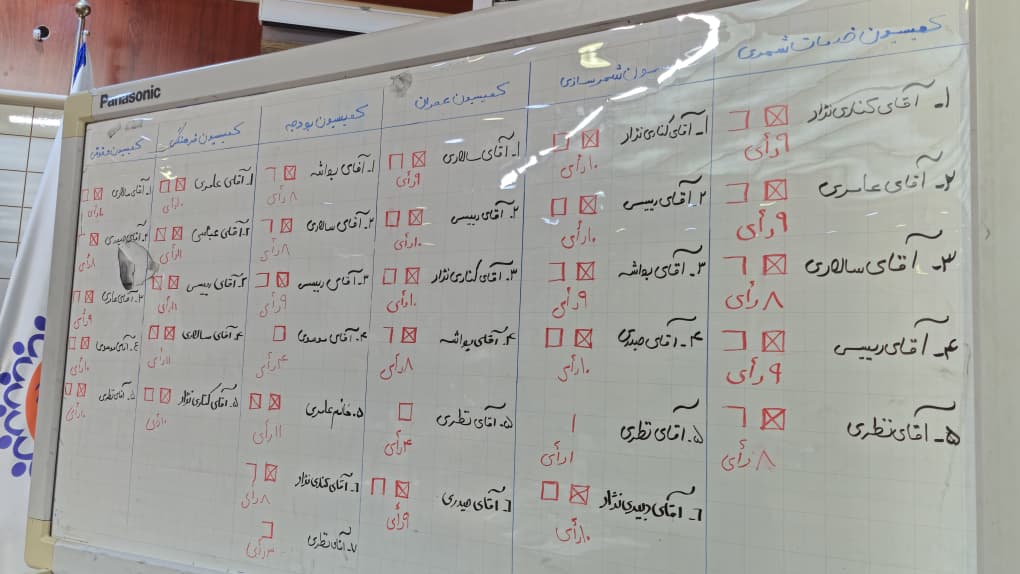 Panasonic
کمیسیون خدمات شهری
۱- آقای کناری نژاد
۹ رأی
۲- آقای عامری
۹ رأی
۳- آقای سالاری
۸ رأی
۴- آقای رییسی
۹ رأی
۵- آقای نظری
۸ رأی
شهرسازی
۱- آقای کناری نژاد
۱۰ رأی
۲- آقای رییسی
۱۰ رأی
۳- آقای بواشه
۹ رأی
۴- آقای حیدری
۱۰ رأی
۵- آقای نظری
۱ رأی
۶- آقای
۱۰ رأی
کمیسیون عمران
۱- آقای سالاری
۹ رأی
۲- آقای رییسی
۱۰ رأی
۳- آقای کناری نژاد
۱۰ رأی
۴- آقای بواشه
۸ رأی
۵- آقای نظری
۴ رأی
۶- آقای حیدری
۹ رأی
کمیسیون بودجه
۱- آقای بواشه
۸ رأی
۲- آقای سالاری
۸ رأی
۳- آقای رییسی
۹ رأی
۴- آقای موسوی
۴ رأی
۵- خانم عامری
۱۱ رأی
۶- آقای کناری نژاد
۸ رأی
۷- آقای نظری
۳ رأی
کمیسیون فرهنگی
۱- آقای عامری
۱۰ رأی
۲- آقای عباسی
۱۱ رأی
۳- آقای رییسی
۱۱ رأی
۴- آقای سالاری
۱۱ رأی
۵- آقای کناری نژاد
۱۰ رأی
کمیسیون حقوقی
۱- آقای سالاری
۱۰ رأی
۲- آقای حیدری
۸ رأی
۳- آقای عامری
۹ رأی
۴- آقای موسوی
۱۰ رأی
۵- آقای نظری
۱۰ رأی